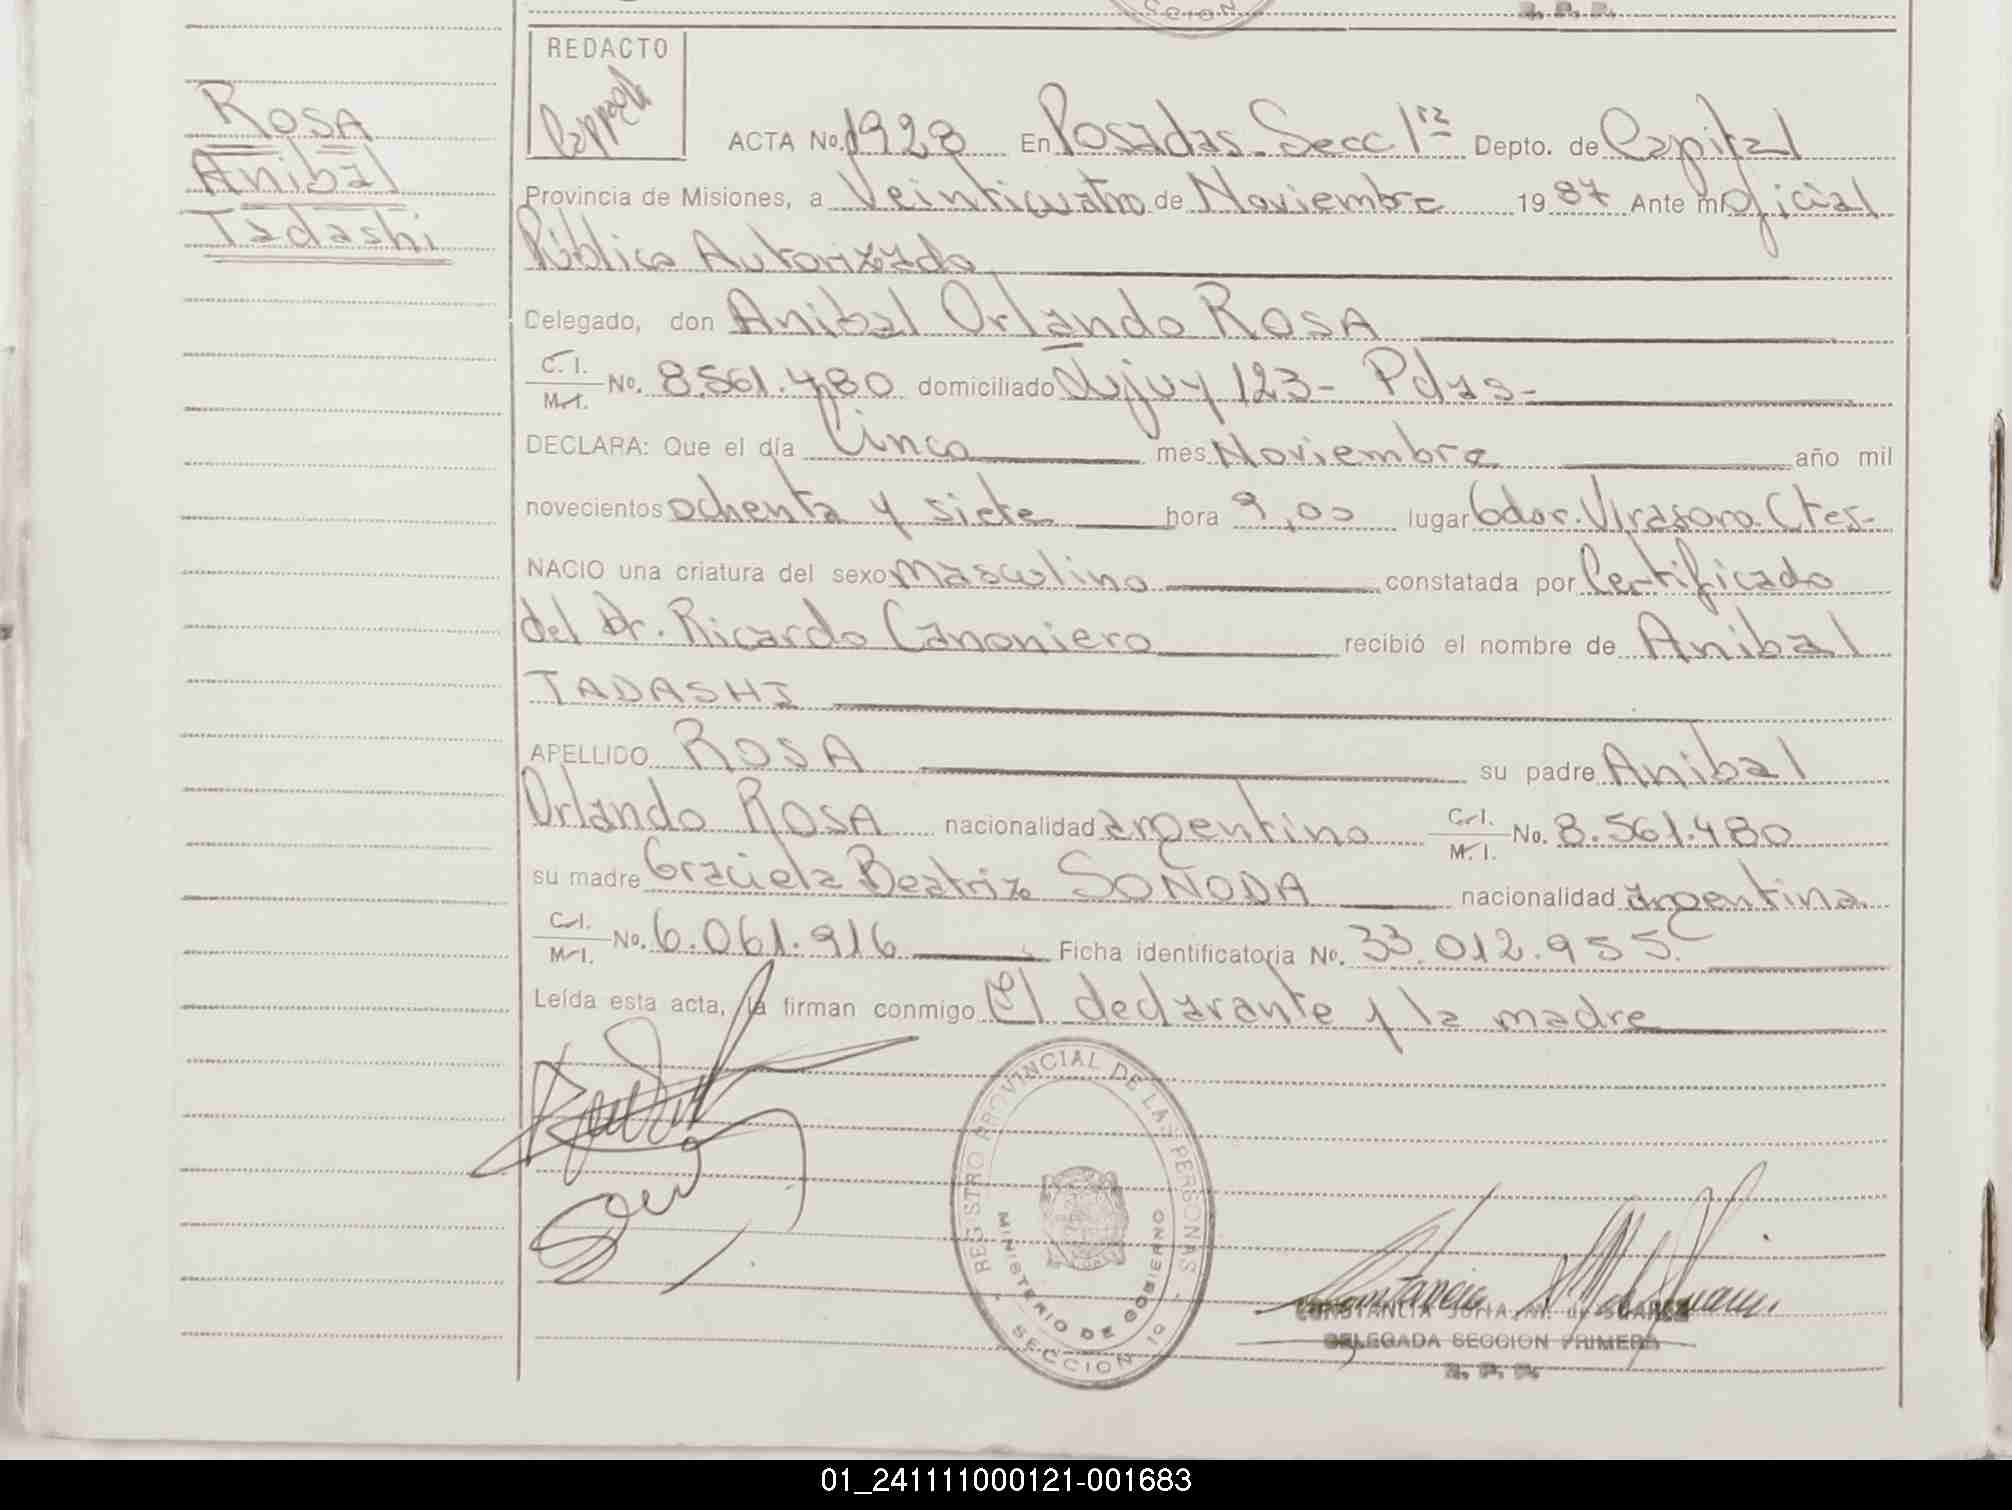 CCION
R. P. P.
REDACTO
Rosa
Anibal
Tadashi
ACTA No. 1928 En Posadas-Secc 1ra Depto. de Capital
Provincia de Misiones, a Veinticuatro de Noviembre 1987 Ante mi Oficial
Público Autorizado
Delegado, don Anibal Orlando ROSA
C. I. / M. I. No. 8.561.480 domiciliado Jujuy 123- Pdas-
DECLARA: Que el día Cinco mes Noviembre año mil
novecientos ochenta y siete hora 9,00 lugar Gdor. Virasoro. Ctes-
NACIO una criatura del sexo masculino constatada por Certificado
del Dr. Ricardo Canoniero recibió el nombre de Anibal
TADASHI
APELLIDO ROSA su padre Anibal
Orlando ROSA nacionalidad argentino C.I. / M. I. No. 8.561.480
su madre Graciela Beatriz SOÑODA nacionalidad argentina
C.I. / M.I. No. 6.061.916 Ficha identificatoria No. 33.012.955.
Leída esta acta, la firman conmigo El declarante y la madre
REGISTRO PROVINCIAL DE LAS PERSONAS
MINISTERIO DE GOBIERNO
SECCION 1a
CONSTANCIA SOFIA M. de SUAREZ
DELEGADA SECCION PRIMERA
R. P. P.
01_241111000121-001683